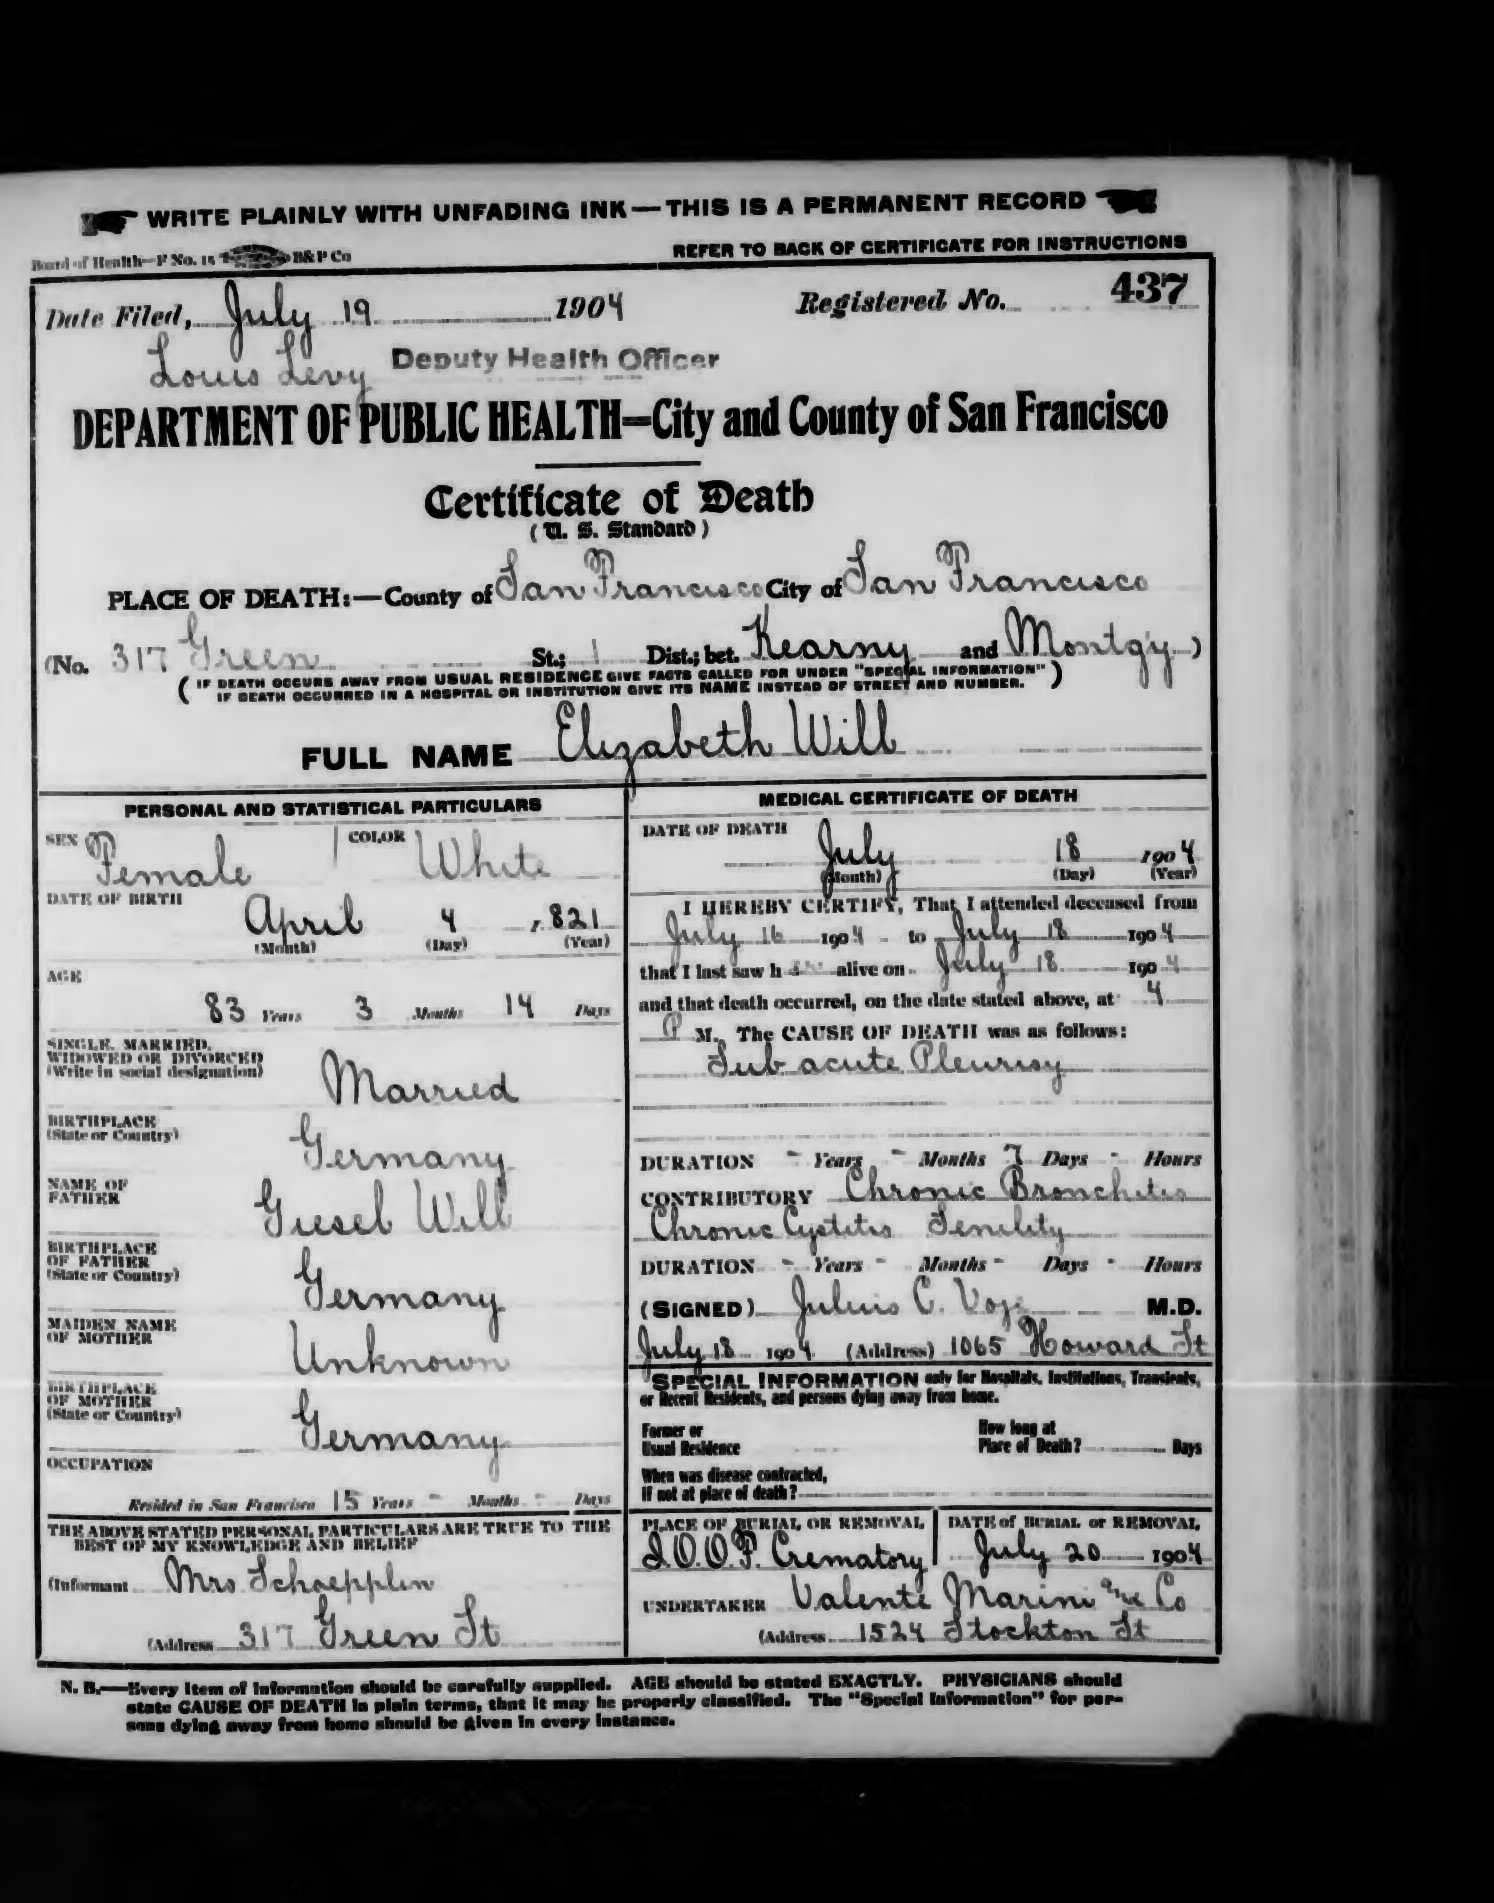 WRITE PLAINLY WITH UNFADING INK—THIS IS A PERMANENT RECORD
Board of Health—F No. 15 B&P Co
REFER TO BACK OF CERTIFICATE FOR INSTRUCTIONS
Date Filed, July 19 1904 Registered No. 437
Louis Levy Deputy Health Officer
DEPARTMENT OF PUBLIC HEALTH—City and County of San Francisco
Certificate of Death
(U. S. Standard)
PLACE OF DEATH:—County of San Francisco City of San Francisco
(No. 317 Green St.; 1 Dist.; bet. Kearny and Montg'y)
(IF DEATH OCCURS AWAY FROM USUAL RESIDENCE GIVE FACTS CALLED FOR UNDER "SPECIAL INFORMATION"
IF DEATH OCCURRED IN A HOSPITAL OR INSTITUTION GIVE ITS NAME INSTEAD OF STREET AND NUMBER.)
FULL NAME Elizabeth Will
PERSONAL AND STATISTICAL PARTICULARS
SEX Female COLOR White
DATE OF BIRTH
April 4, 1821
(Month) (Day) (Year)
AGE
83 Years 3 Months 14 Days
SINGLE, MARRIED,
WIDOWED OR DIVORCED
(Write in social designation)
Married
BIRTHPLACE
(State or Country)
Germany
NAME OF
FATHER
Giesel Will
BIRTHPLACE
OF FATHER
(State or Country)
Germany
MAIDEN NAME
OF MOTHER
Unknown
BIRTHPLACE
OF MOTHER
(State or Country)
Germany
OCCUPATION
Resided in San Francisco 15 Years - Months - Days
THE ABOVE STATED PERSONAL PARTICULARS ARE TRUE TO THE
BEST OF MY KNOWLEDGE AND BELIEF
(Informant Mrs Schoepplin
(Address 317 Green St
MEDICAL CERTIFICATE OF DEATH
DATE OF DEATH
July 18 1904
(Month) (Day) (Year)
I HEREBY CERTIFY, That I attended deceased from
July 16 1904 to July 18 1904
that I last saw her alive on July 18 1904
and that death occurred, on the date stated above, at 4
P M. The CAUSE OF DEATH was as follows:
Sub acute Pleurisy
DURATION - Years - Months 7 Days - Hours
CONTRIBUTORY Chronic Bronchitis
Chronic Cystitis Senility
DURATION - Years - Months - Days - Hours
(SIGNED) Julius C. M.D.
July 18 1904 (Address) 1065 Howard St
SPECIAL INFORMATION only for Hospitals, Institutions, Transients,
or Recent Residents, and persons dying away from home.
Former or
Usual Residence
How long at
Place of Death? Days
When was disease contracted,
if not at place of death?
PLACE OF BURIAL OR REMOVAL
I.O.O.F. Crematory
DATE of BURIAL or REMOVAL
July 20 1904
UNDERTAKER Valente Marini and Co
(Address 1524 Stockton St
N. B.—Every item of information should be carefully supplied. AGE should be stated EXACTLY. PHYSICIANS should
state CAUSE OF DEATH in plain terms, that it may be properly classified. The "Special Information" for per-
sons dying away from home should be given in every instance.